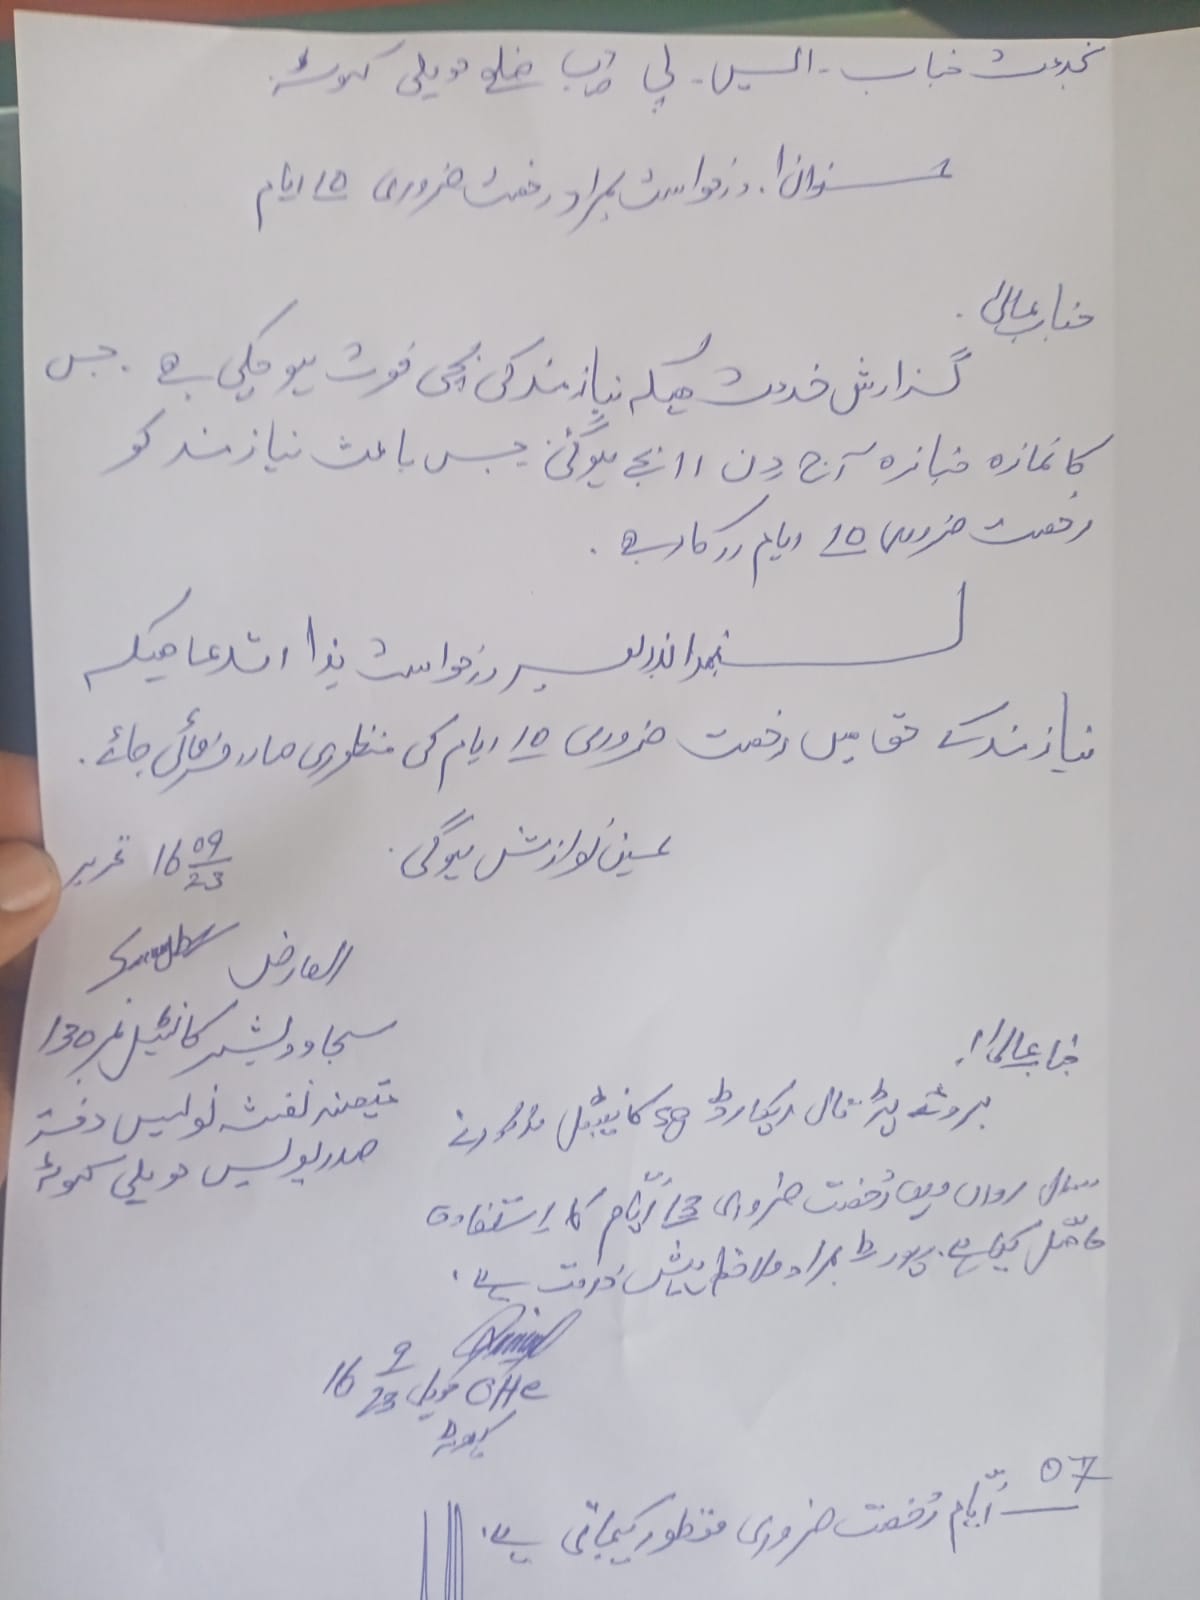 بخدمت جناب۔ ایس۔ پی صاحب ضلع حویلی کہوٹہ
عنوان! درخواست بمراد رخصت ضروری 10 ایام
جناب عالی!
گزارش خدمت هیکہ نیازمند کی بچی فوت ہو چکی ہے ۔ جس
کا نمازہ جنازہ آج دن 11 بجے ہوگئی جس باعث نیازمند کو
رخصت ضروری 10 ایام درکار ہے ۔
لہذا بذریعہ درخواست ہذا استدعا هیکہ
نیازمند کے حق میں رخصت ضروری 10 ایام کی منظوری صادر فرمائی جائے ۔
عین نوازش ہوگی ۔
تحریر 16 09/23
العارض
سجاد بشیر کانٹیبل نمبر 130
متعینہ نفت پولیس دفتر
صدر پولیس حویلی کہوٹہ
جناب عالی!
بروئے پڑتال ریکارڈ کانسٹیبل مذکور نے
سال رواں میں رُخصت ضروری 13 اُیّام کا اِستفادہ
حاصل کیا ہے۔ رپورٹ بمراد ملاحظہ پیش خدمت ہے ۔
16 9/23 OHC حویلی
کہوٹہ
07 اُیّام رُخصت ضروری منظور کیجاتی ہے ۔